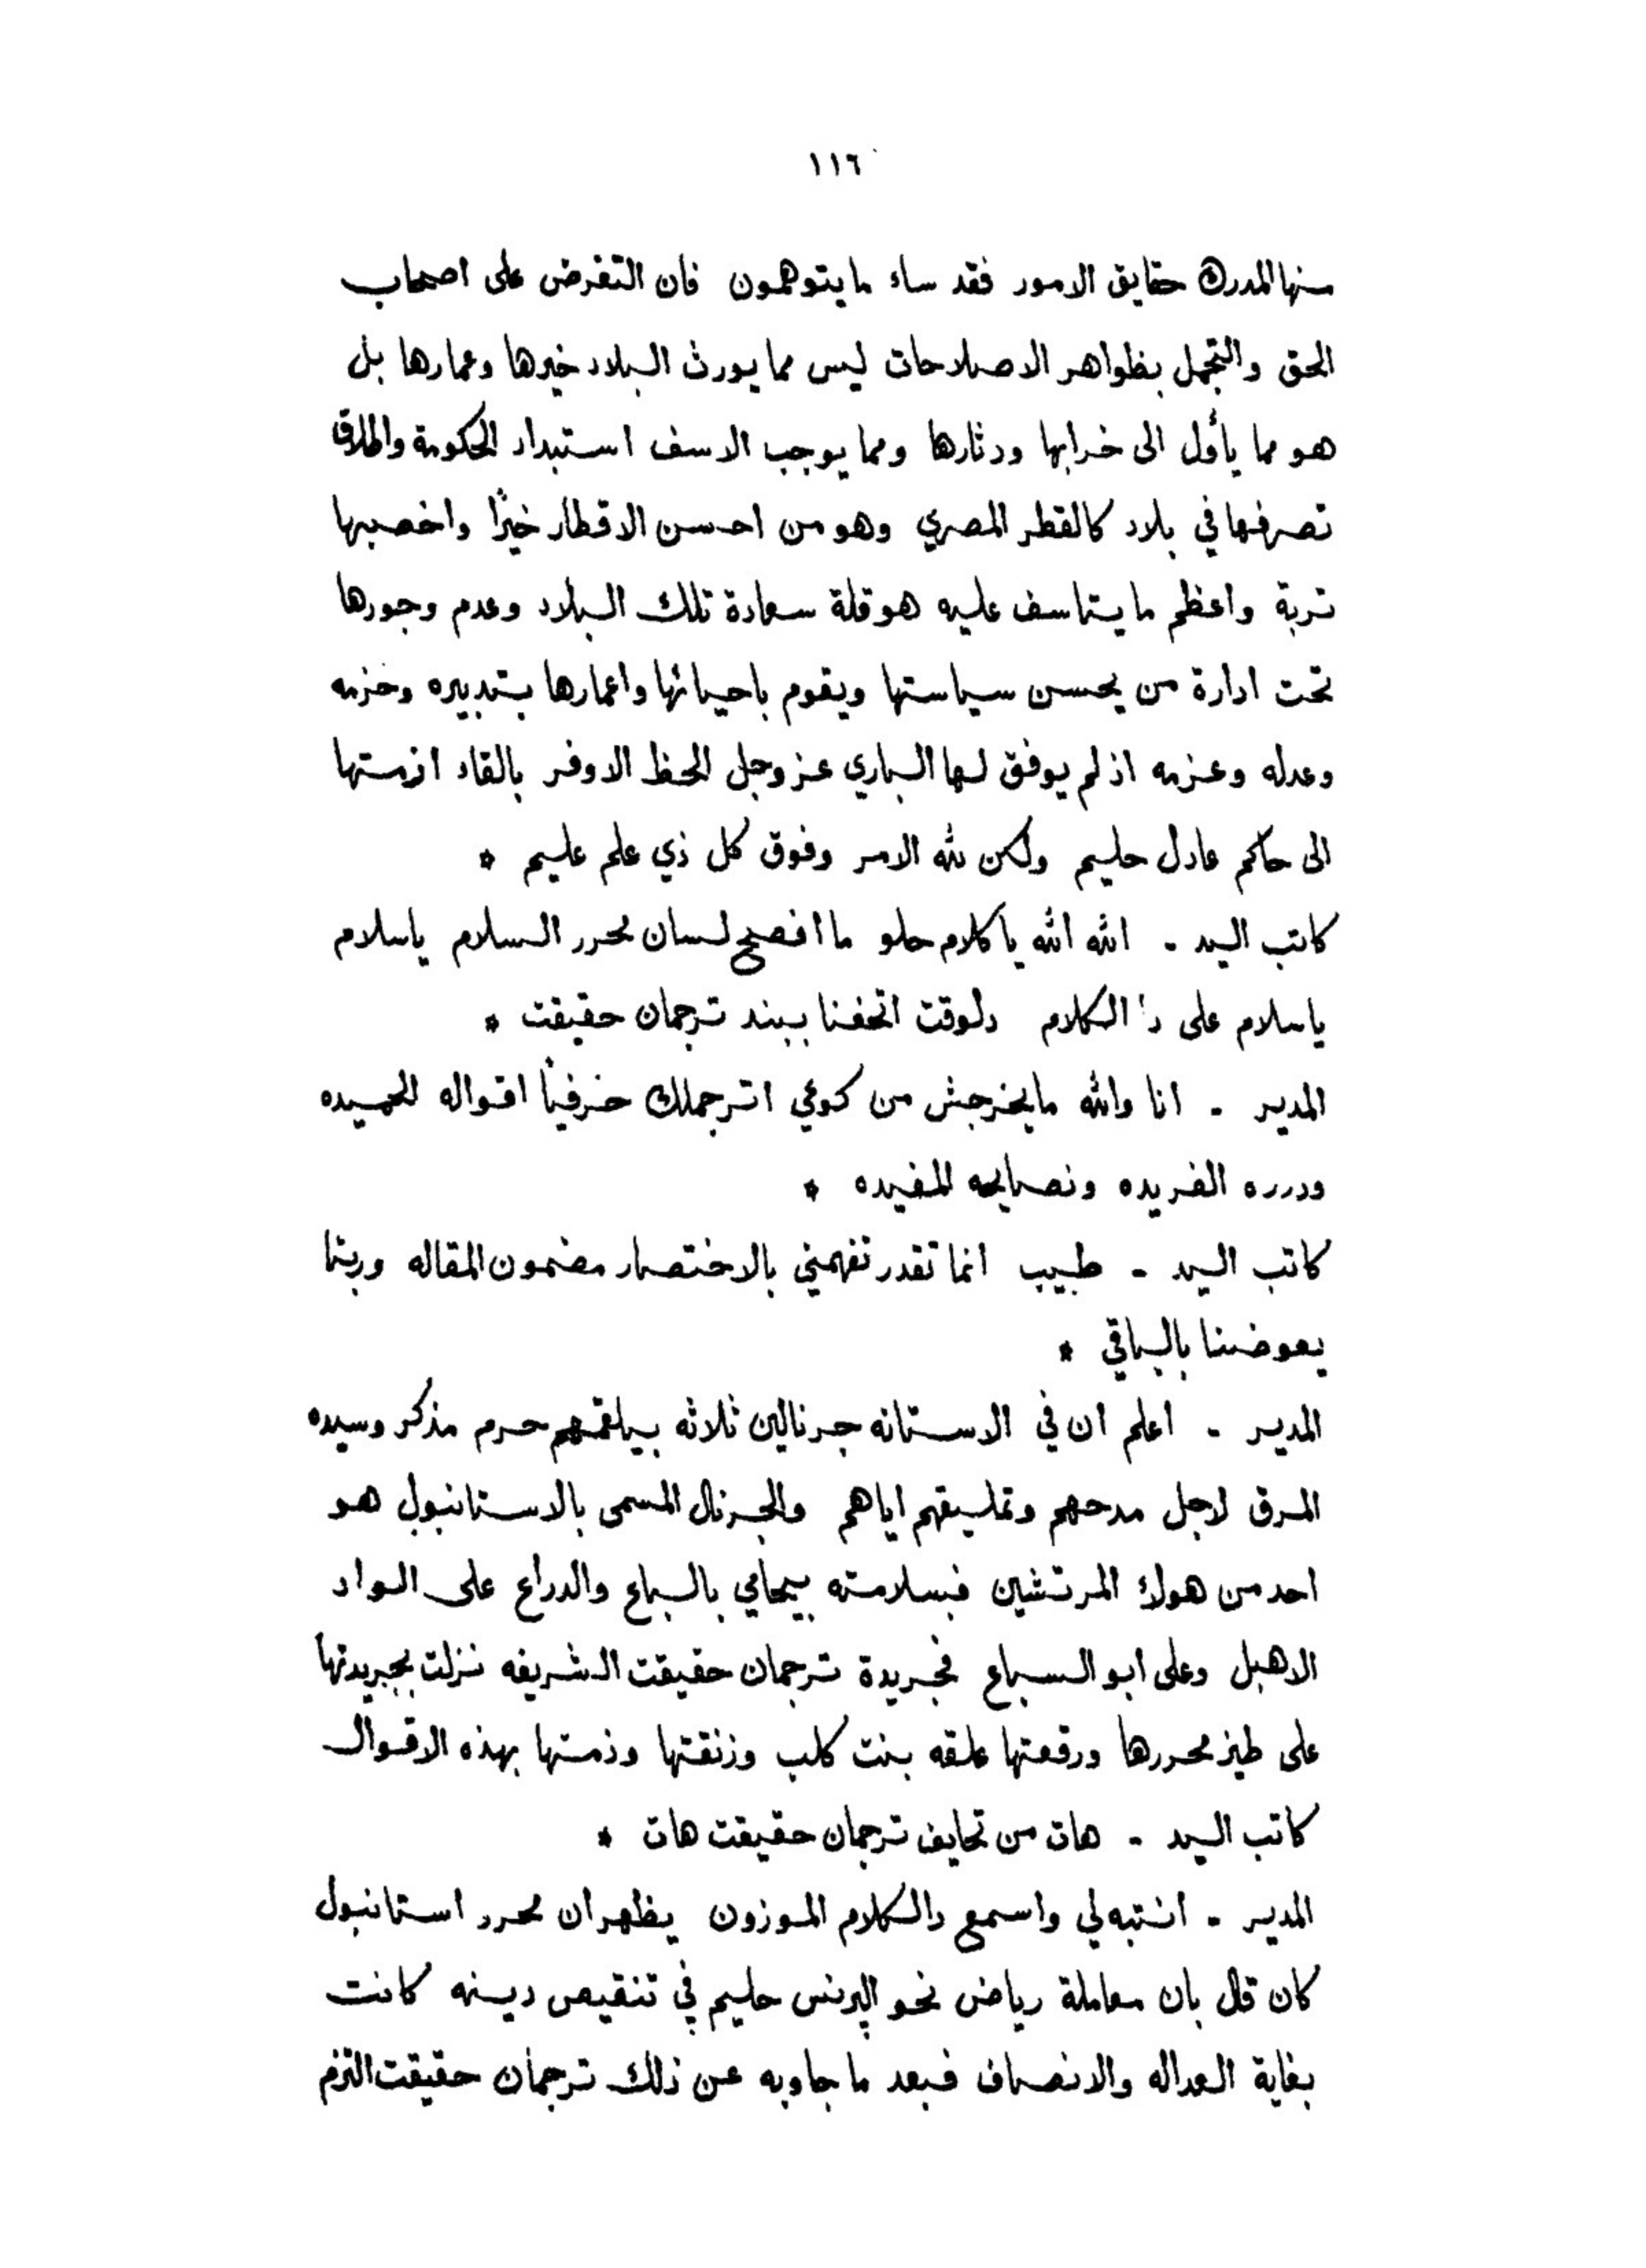 ١١٦
منها المدرك حقايق الامور فقد ساء ما يتوهمون فان التغرض على اصحاب
الحق والتجمل بظواهر الاصلاحات ليس مما يورث البلاد خيرها وعمارها بل
هو مما يأول الى خرابها ودثارها ومما يوجب الاسف استبداد الحكومة واطلاق
تصرفها في بلاد كالقطر المصري وهو من احسن الاقطار خيرًا واخصبها
تربة واعظم ما يتاسف عليه هو قلة سعادة تلك البلاد وعدم وجودها
تحت ادارة من يحسن سياستها ويقوم باحيائها واعمارها بتدبيره وحزمه
وعدله وعزمه اذ لم يوفق لها الباري عز وجل الحظ الاوفر بالقاء ازمتها
الى حاكم عادل حليم ولكن لله الامر وفوق كل ذي علم عليم *
كاتب السيد - الله الله يا كلام حلو ما افصح لسان محرر السلام ياسلام
ياسلام على دا الكلام دلوقت اتحفنا ببند ترجمان حقيقت *
المدير - انا والله مايخرجش من كوعي اترجملك حرفيًا اقواله الحميده
ودرره الفريده ونصايحه المفيده *
كاتب السيد - طيب انما تقدر تفهمني بالاختصار مضمون المقاله وربنا
يعوضنا بالباقي *
المدير - اعلم ان في الاستانه جرنالين ثلاثه بيلقمهم حرم مذكر وسيده
المرق لاجل مدحهم وتمليقهم اياهم والجرنال المسمى بالاستانبول هو
احد من هولاء المرتشين فبسلامته بيحامي بالباع والدراع على الواد
الاهبل وعلى ابو السباع فجريدة ترجمان حقيقت الشريفه نزلت بجريدتها
على طيز محررها ورقعتها علقه بنت كلب وزنقتها وذمتها بهذه الاقوال
كاتب السيد - هات من تحايف ترجمان حقيقت هات *
المدير - انتبه لي واسمع دالكلام الموزون يظهر ان محرر استانبول
كان قال بان معاملة رياض نحو البرنس حليم في تنقيص دينه كانت
بغاية العداله والانصاف فبعد ما جاوبه عن ذلك ترجمان حقيقت التزم